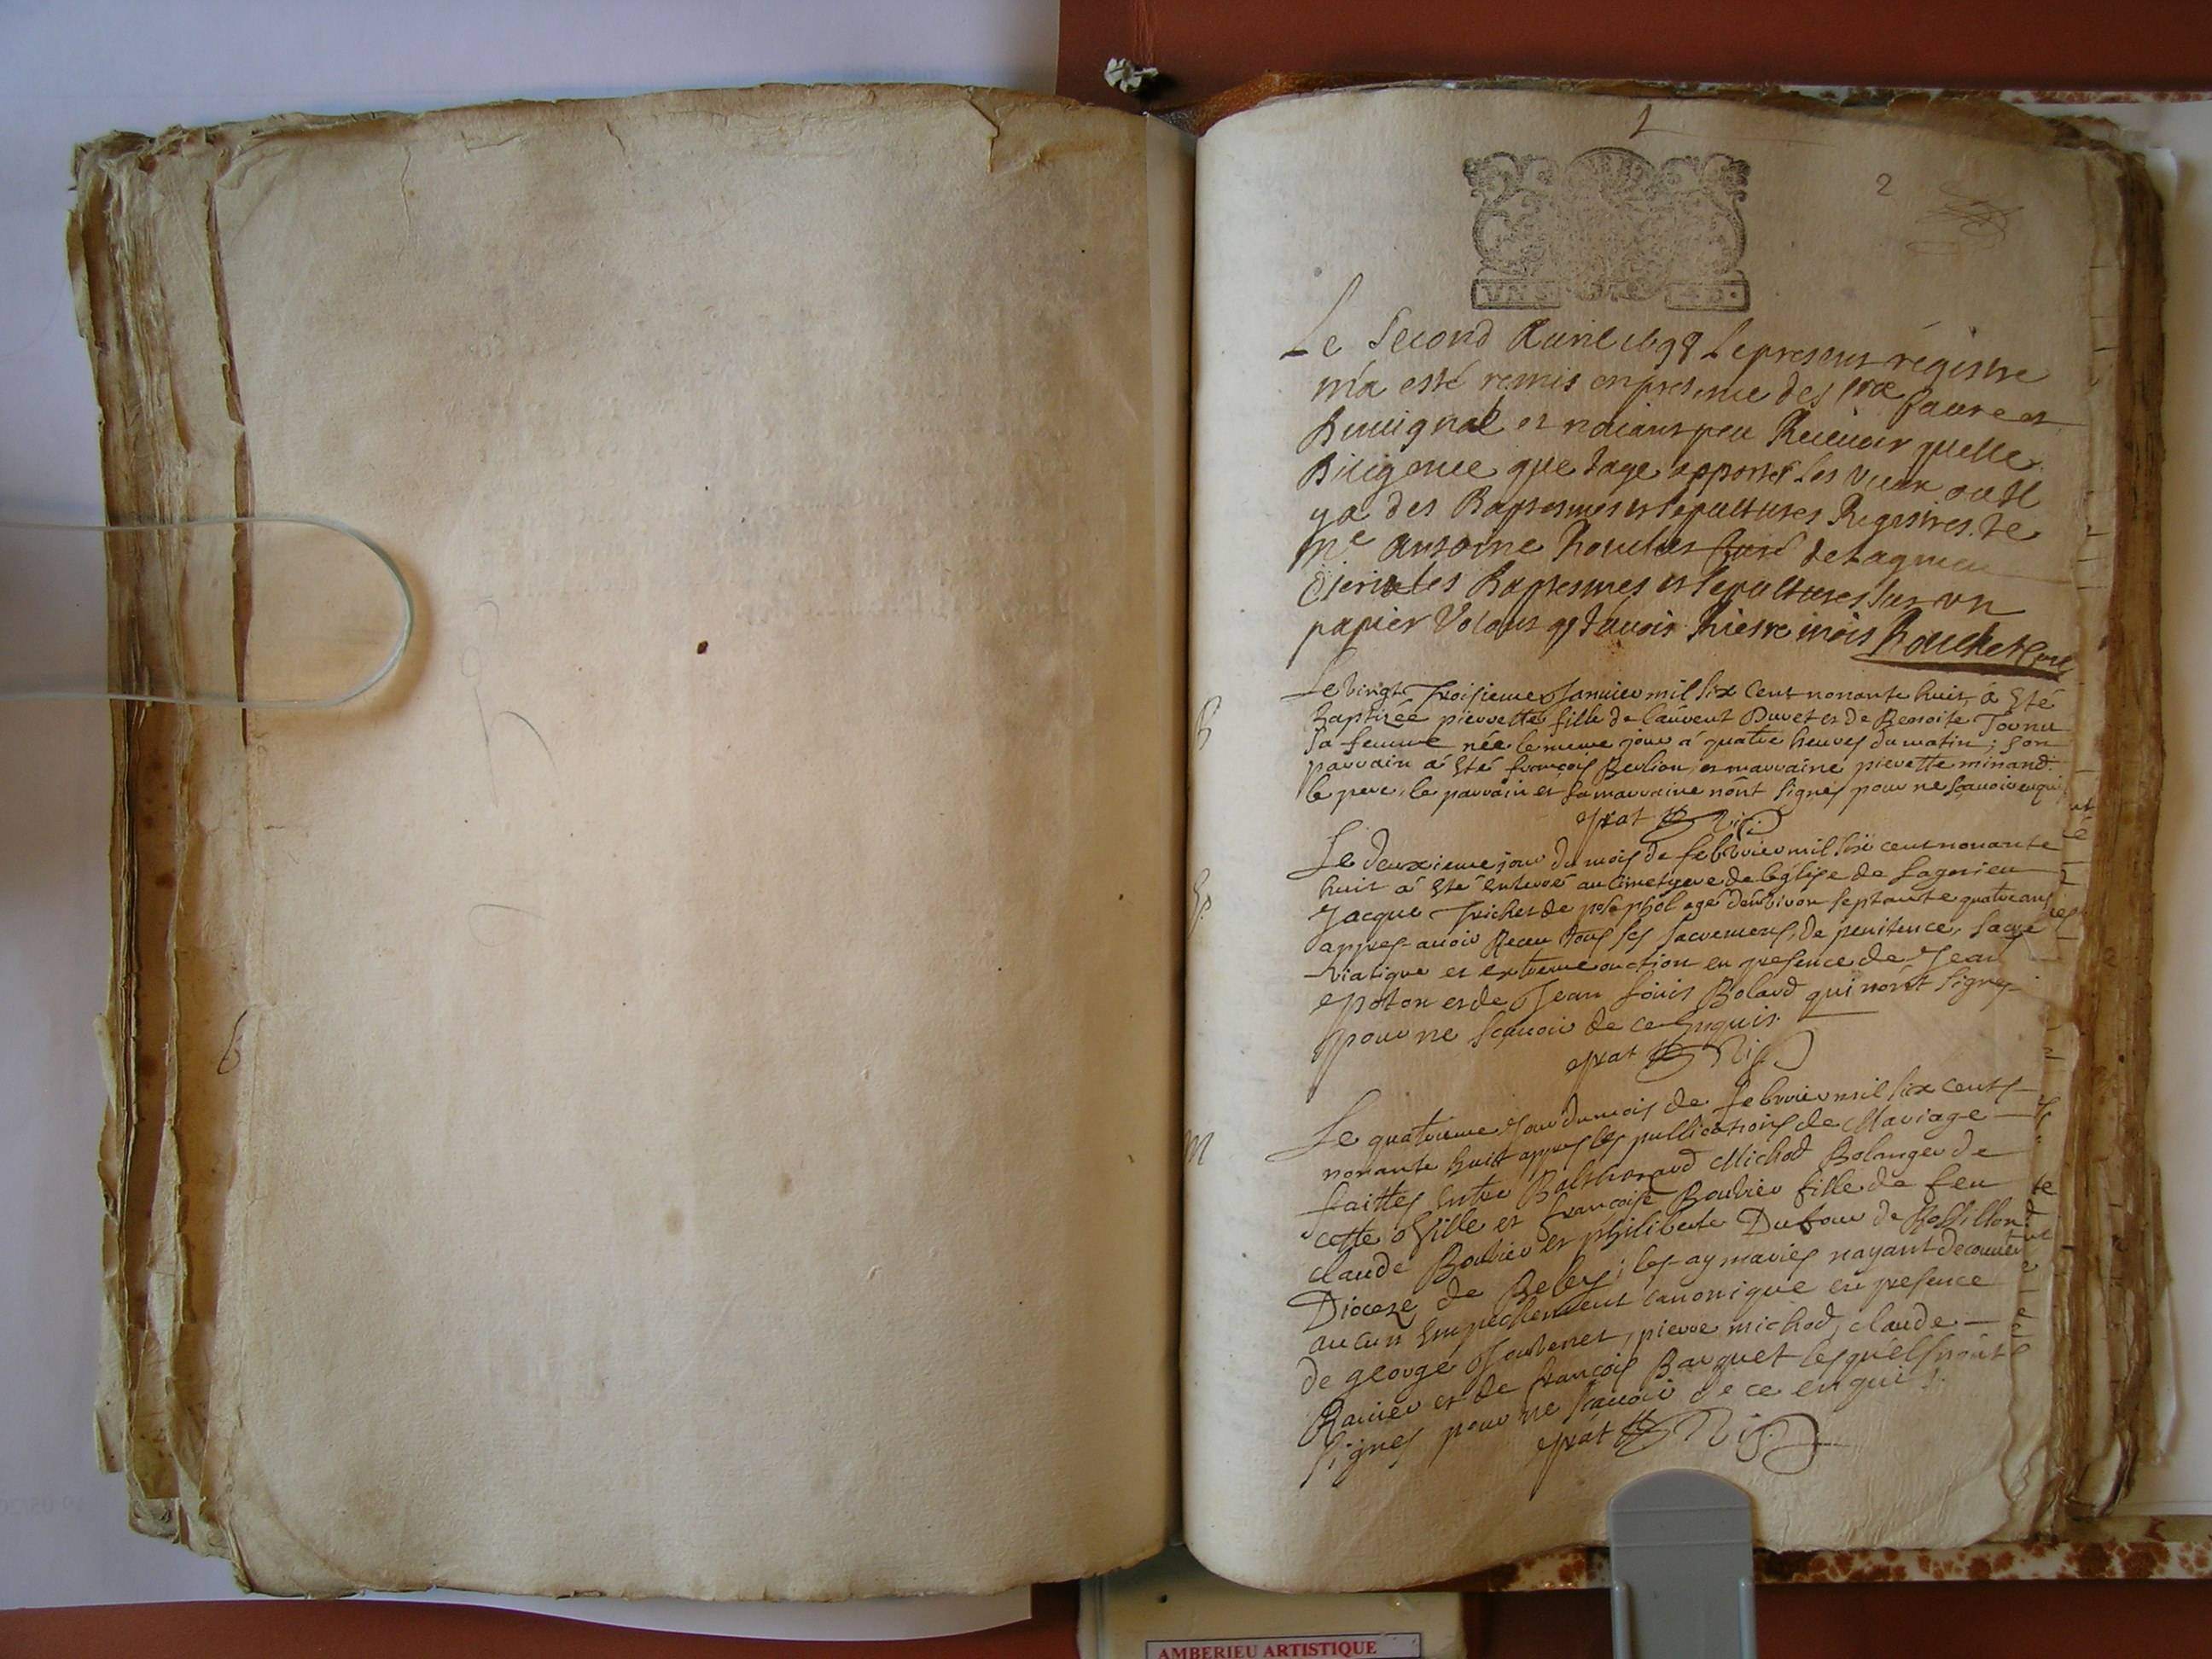 1
2
Le Second Auril 1698 le present registre
m'a esté remis en presence des faure et
et naiant peu Receuoir quelle
Diligence que iaye apporté les vieux ou Il
ya des Baptesmes et sepultures Registres. Je
Me Antoine Rouchet Curé de Lagnieu
les Baptesmes et sepultures sur un
papier Volant Rouchet Curé
B
Le vingt troisieme Januier mil six cent nonante huit à Eté
Baptizée pierrette fille de laurent Duret et de Benoite Tornu
sa femme née le meme jour à quatre heures du matin; son
parrain à Eté françois Berlion, et marraine pierrette minand.
le pere, le parrain et la marraine n'ont signés pour ne scauoir enquis
prat Vic.
Sp.
Le deuxieme jour du mois de febvrier mil six cent nonante
huit à Eté Enterré au Cimetyere de l'église de Lagnieu
Jacque Trichet de agé d'environ septante quatre ans
appres auoir Receu tous ses sacremens, de penitence, sacré
viatique et extreme onction en presence de Jean
poton et de Jean Loüis Bolard qui n'ont signé
pour ne scauoir de ce Enquis.
prat Vic.
M
Le quatrieme Jour du mois de febvrier mil six cents
nonante huit appres les publications de Mariage
faittes Entre Balthazard Michod Bolanger de
cette Ville et françoise Bouvier fille de feu
claude Bouvier et philiberte Dufour de Rossillon
Dioceze de Beley; les ay mariés nayant decouvert
aucun Empechement canonique en presence
de george Jouvenet, pierre michod, claude
Ravier et de françois Barquet lesquels n'ont
signés pour ne scauoir de ce enquis.
prat Vic.
6
AMBERIEU ARTISTIQUE